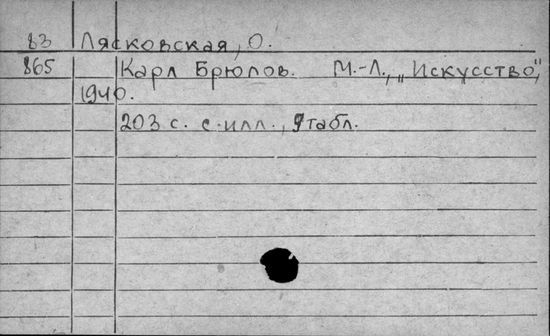 83 Лясковская, О.
865 Карл Брюлов. М.-Л., „Искусство",
1940.
203 с. с илл., 9 табл.